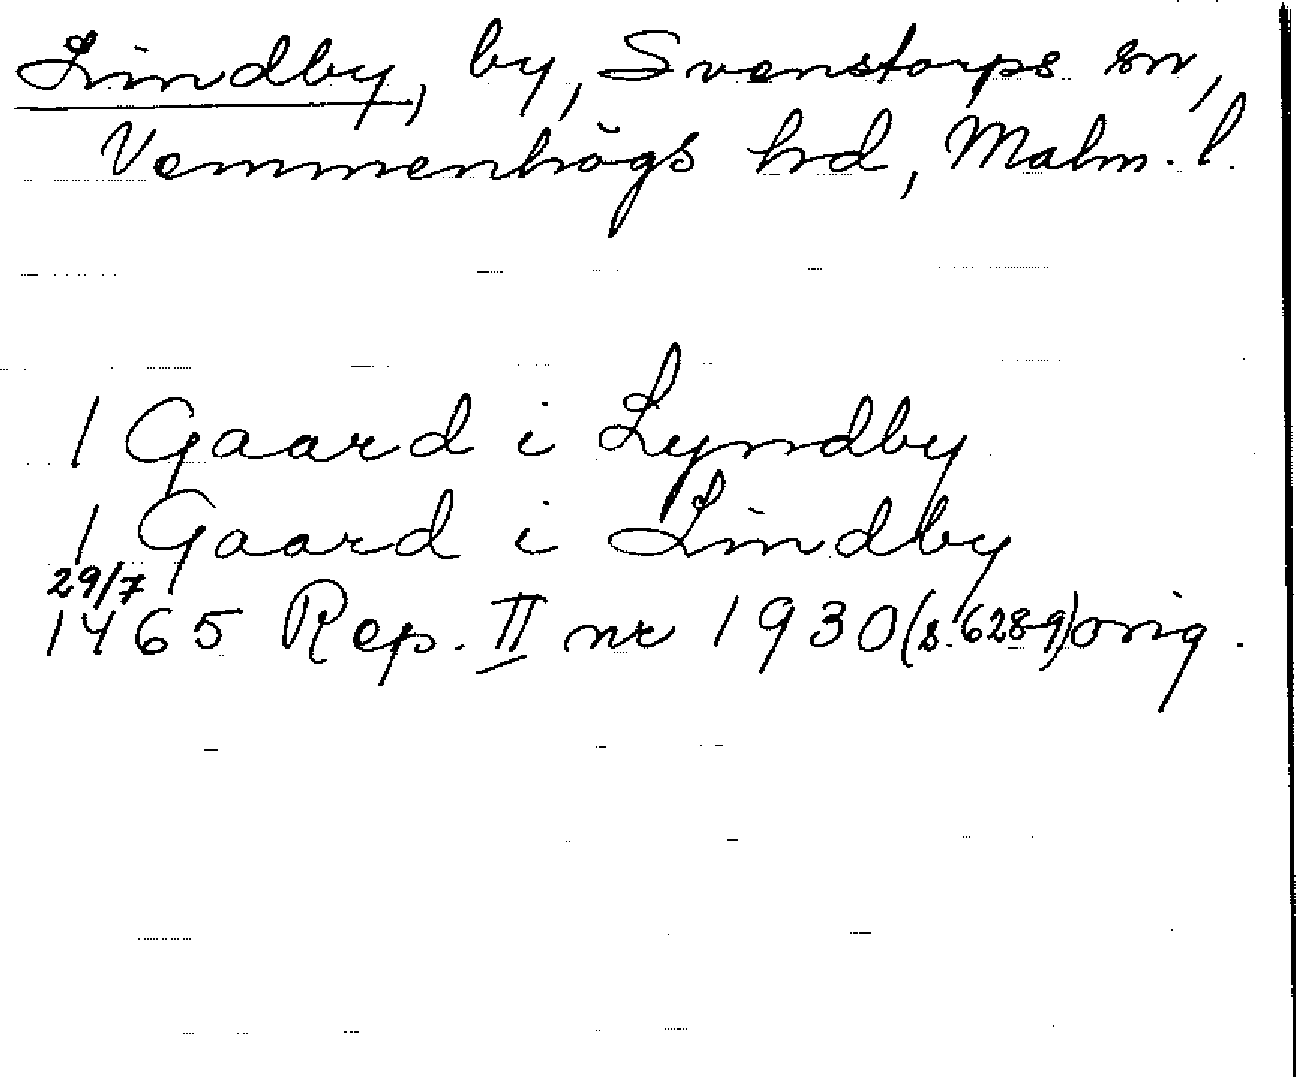 Lindby, by, Svenstorps sn,
Vemmenhögs hd, Malm. l.
1 Gaard i Lyndby
1 Gaard i Lindby
29/7
1465 Rep. II nr 1930 (s. 628-9) orig.